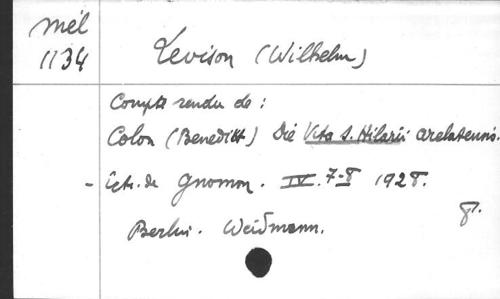 Mél
1134
Levison (Wilhelm)
Compte rendu de :
Colon (Benedikt) Die Vita S. Hilarii arelatensis.
- Extr. de Gnomon. IV. 7-8 1928.
8º.
Berlin. Weidmann.